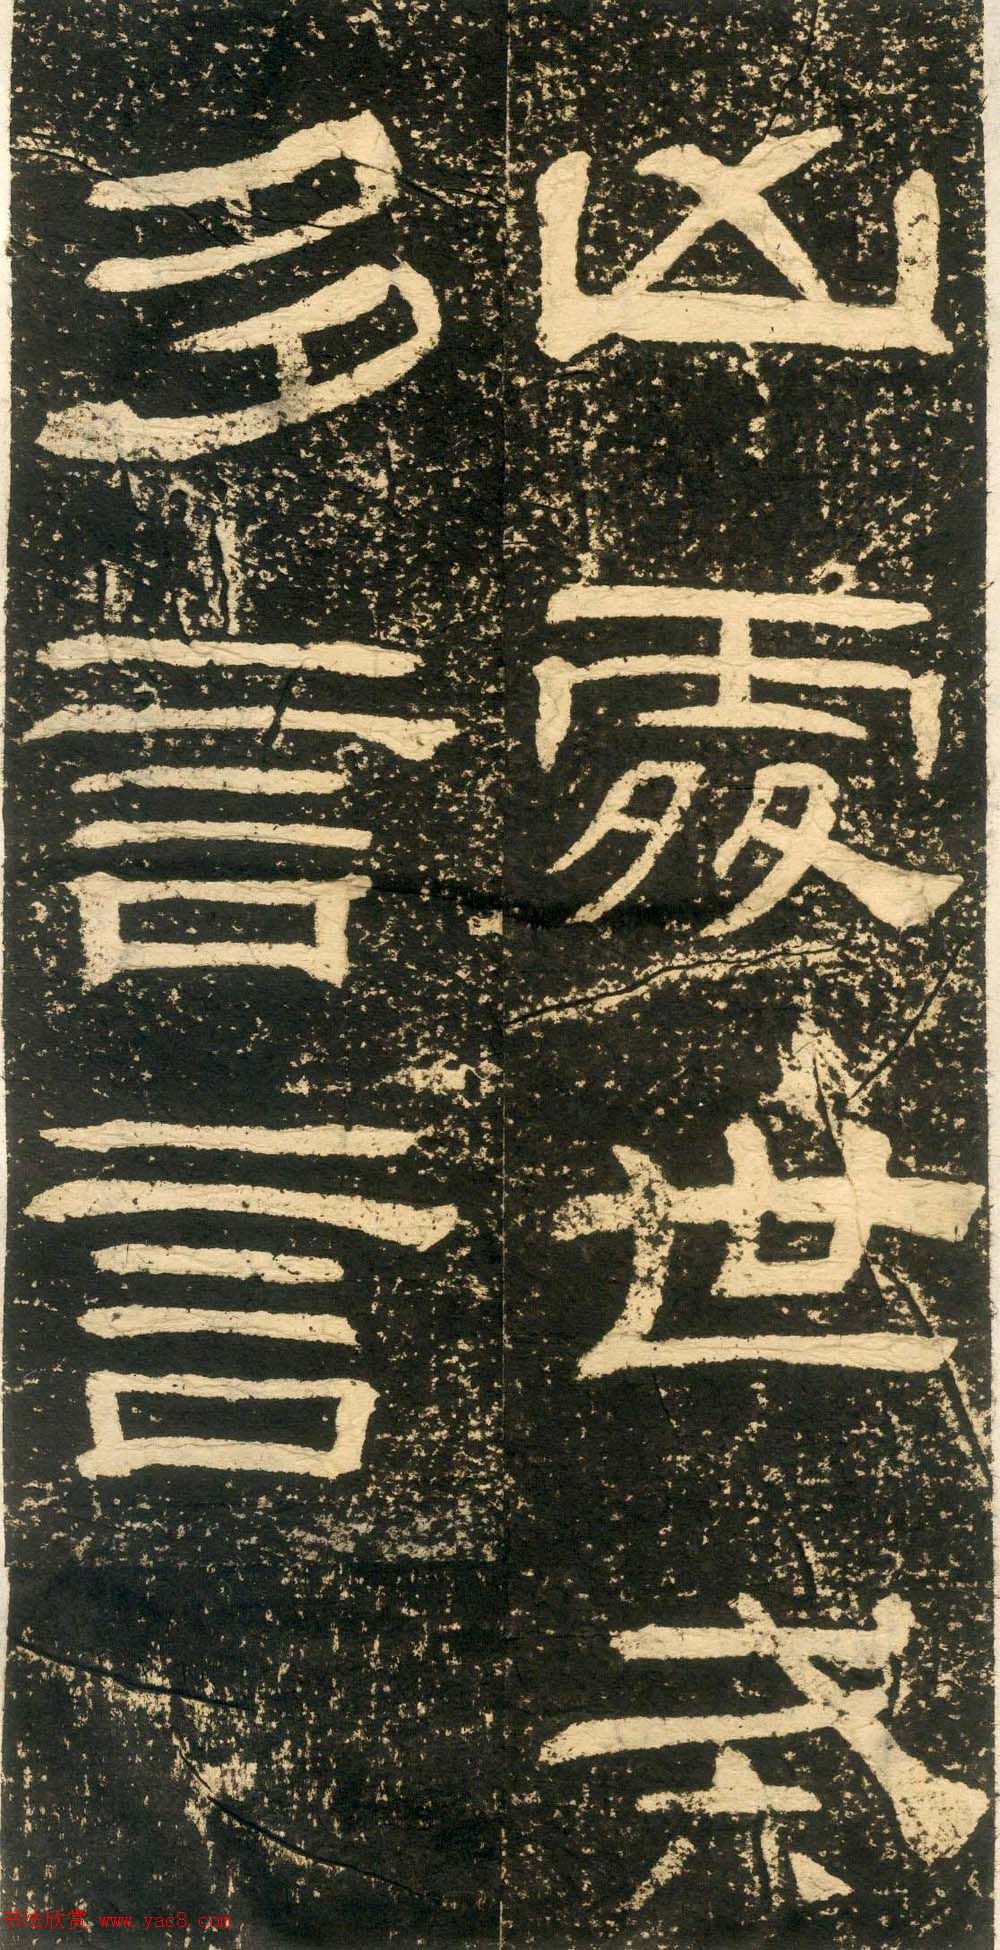 凶世戚
多言言
书法欣赏 www.yac8.com